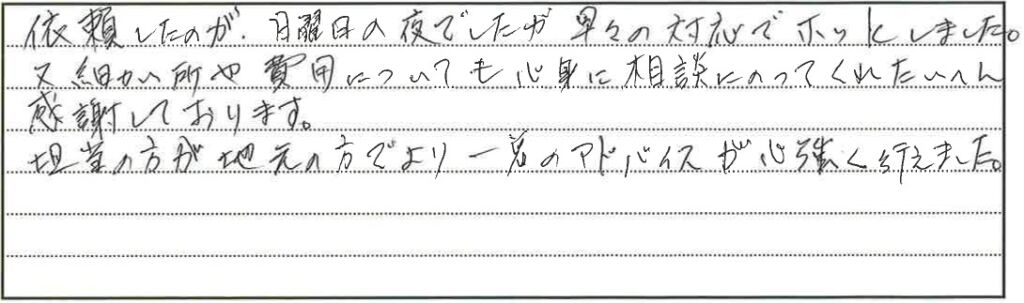 依頼したのが、日曜日の夜でしたが早々の対応でホッとしました。
又細かい所や費用についても心身に相談にのってくれたいへん
感謝しております。
担当の方が地元の方でより一層のアドバイスが心強く行えました。